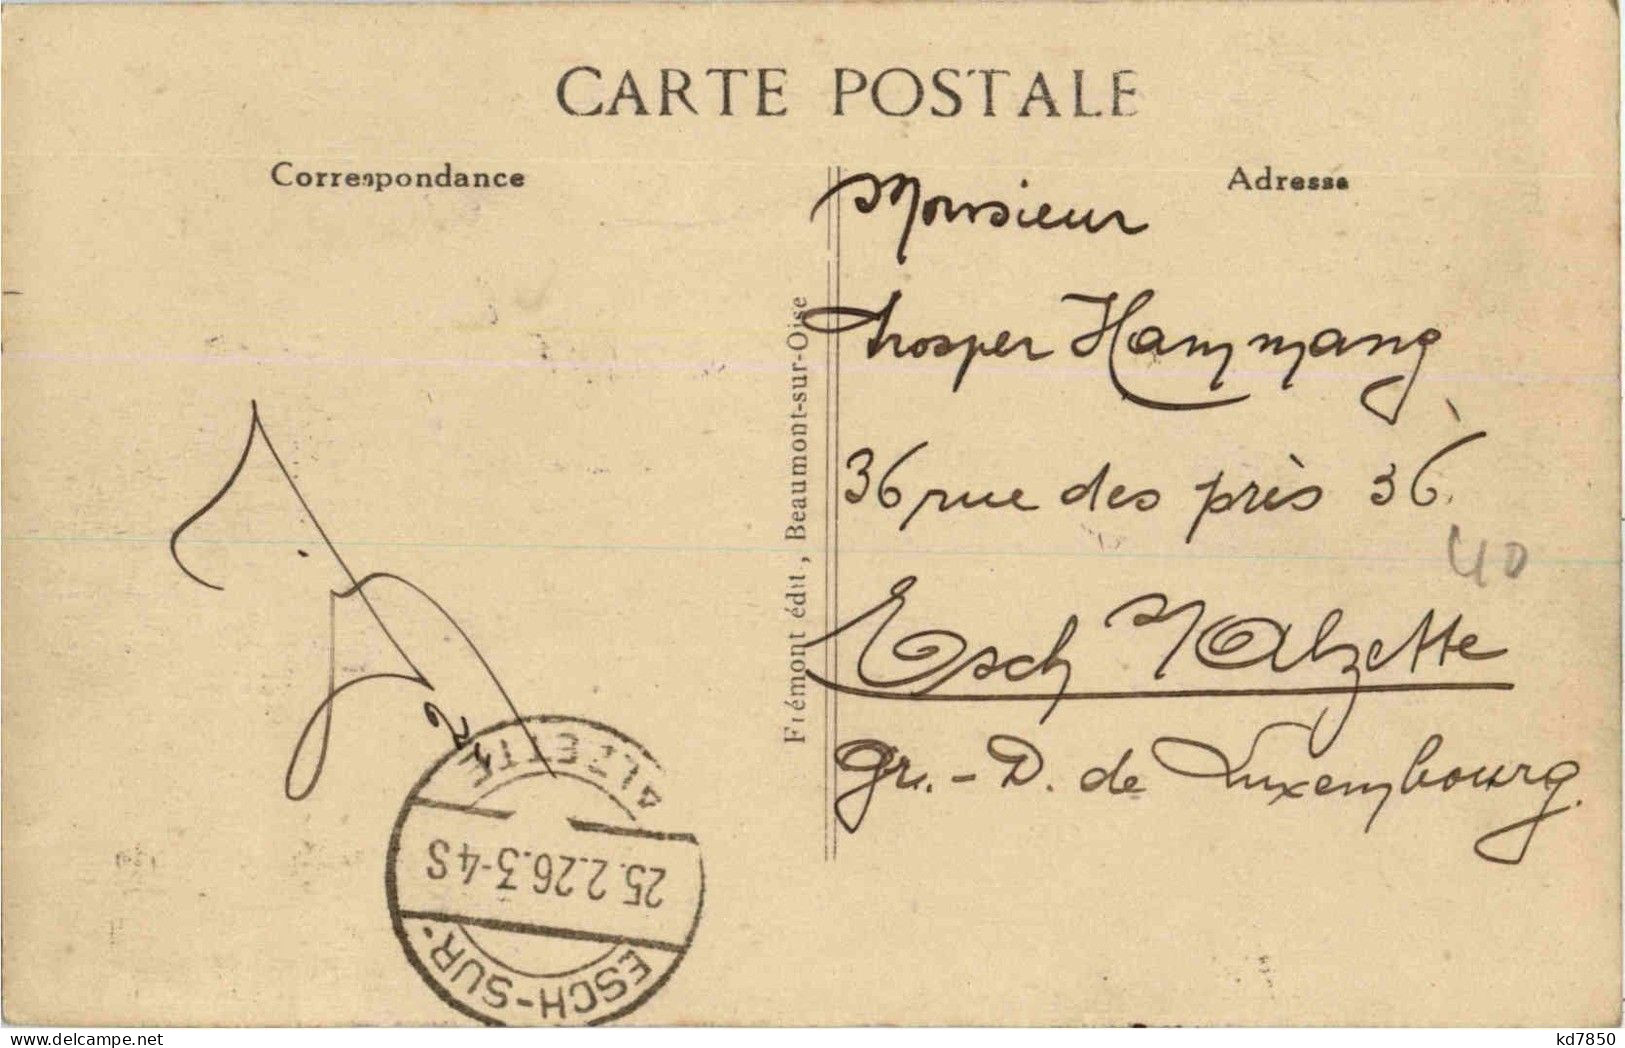 CARTE POSTALE
Correspondance
Adresse
Monsieur
Prosper Hammang
36 rue des près 36.
Esch s/Alzette
Gr.-D. de Luxembourg.
40
Frémont édit., Beaumont-sur-Oise
ESCH-SUR-
25.2.26.3-4S
ALZETTE
kd7850